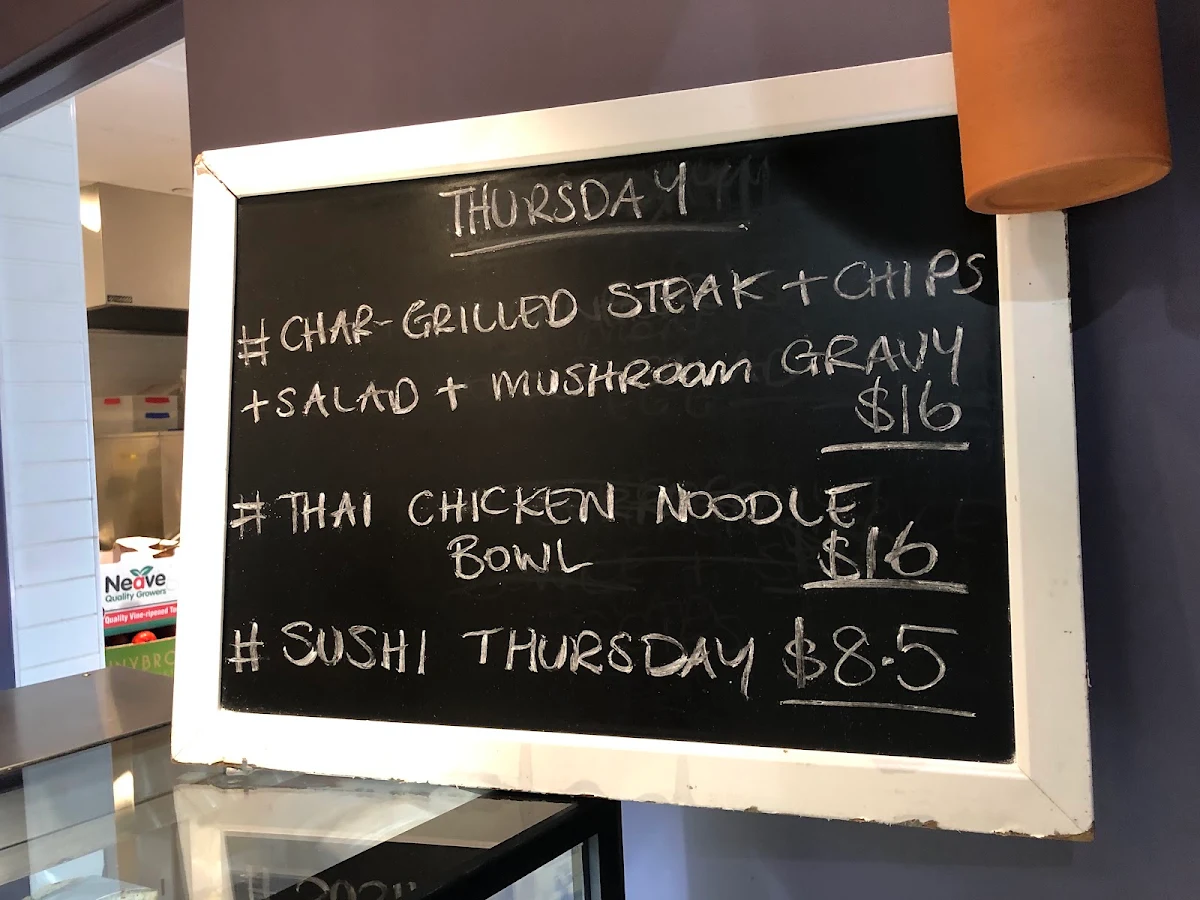 THURSDAY
# CHAR-GRILLED STEAK + CHIPS
+ SALAD + MUSHROOM GRAVY
$16
# THAI CHICKEN NOODLE
BOWL $16
# SUSHI THURSDAY $8.5
Neave
Quality Growers
Quality Vine-ripened